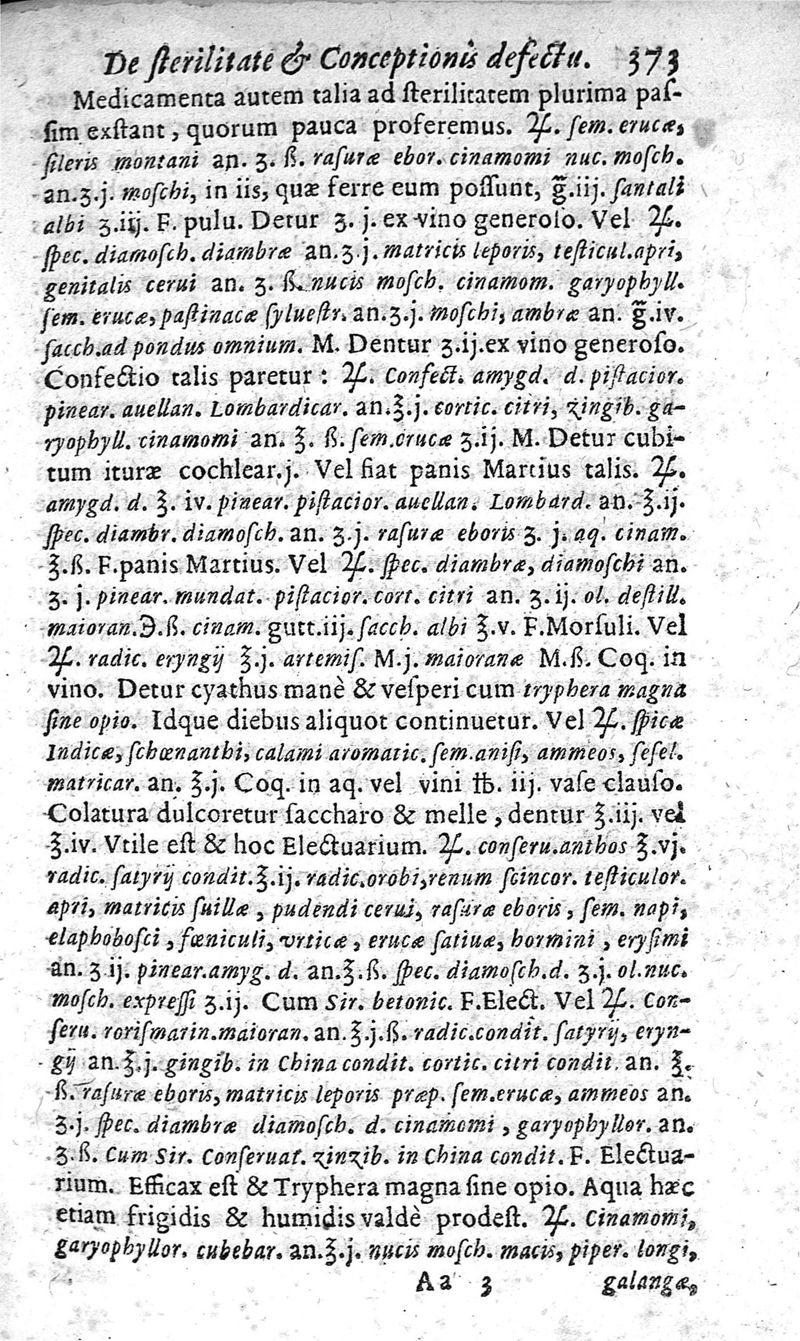 De sterilitate & Conceptionis defectu. 373
Medicamenta autem talia ad sterilitatem plurima pas-
sim exstant, quorum pauca proferemus. ♃. sem. erucæ,
sileris montani an. ʒ. ß. rasuræ ebor. cinamomi nuc. mosch.
an.ʒ.j. moschi, in iis, quæ ferre eum possunt, g̃.iij. santali
albi ʒ.iij. F. pulu. Detur ʒ. j. ex vino generoso. Vel ♃.
spec. diamosch. diambræ an.ʒ.j. matricis leporis, testicul.apri,
genitalis cerui an. ʒ. ß. nucis mosch. cinamom. garyophyll.
sem. erucæ, pastinacæ syluestr. an.ʒ.j. moschi, ambræ an. g̃.iv.
sacch.ad pondus omnium. M. Dentur ʒ.ij.ex vino generoso.
Confectio talis paretur: ♃. Confect. amygd. d. pistacior.
pinear. auellan. Lombardicar. an.℥.j. cortic. citri, zingib. ga-
ryophyll. cinamomi an. ℥. ß. sem.erucæ ʒ.ij. M. Detur cubi-
tum ituræ cochlear.j. Vel fiat panis Martius talis. ♃.
amygd. d. ℥. iv. pinear. pistacior. auellan. Lombard. an. ℥.ij.
spec. diambr. diamosch. an. ʒ.j. rasuræ eboris ʒ. j. aq. cinam.
℥.ß. F.panis Martius. Vel ♃. spec. diambræ, diamoschi an.
ʒ. j. pinear. mundat. pistacior. cort. citri an. ʒ.ij. ol. destill.
maioran.℈.ß. cinam. gutt.iij. sacch. albi ℥.v. F.Morsuli. Vel
♃. radic. eryngij ℥.j. artemis. M.j. maioranæ M.ß. Coq. in
vino. Detur cyathus manè & vesperi cum tryphera magna
sine opio. Idque diebus aliquot continuetur. Vel ♃. spicæ
Indicæ, schœnanthi, calami aromatic. sem.anisi, ammeos, sesel.
matricar. an. ℥.j. Coq. in aq. vel vini ℔. iij. vase clauso.
Colatura dulcoretur saccharo & melle, dentur ℥.iij. vel
℥.iv. Vtile est & hoc Electuarium. ♃. conseru.anthos ℥.vj.
radic. satyrij condit.℥.ij. radic.orobi,renum scincor. testiculor.
apri, matricis suillæ, pudendi cerui, rasuræ eboris, sem. napi,
elaphobosci, fœniculi, vrticæ, erucæ satiuæ, hormini, erysimi
an. ʒ ij. pinear.amyg. d. an.℥.ß. spec. diamosch.d. ʒ.j. ol.nuc.
mosch. expressi ʒ.ij. Cum Sir. betonic. F.Elect. Vel ♃. Con-
seru. rorismarin.maioran. an.℥.j.ß. radic.condit. satyrij, eryn-
gij an.℥.j. gingib. in China condit. cortic. citri condit. an. ℥.
ß. rasuræ eboris, matricis leporis præp. sem.erucæ, ammeos an.
ʒ.j. spec. diambræ diamosch. d. cinamomi, garyophyllor. an.
ʒ.ß. Cum Sir. Conseruat. zinzib. in China condit. F. Electua-
rium. Efficax est & Tryphera magna sine opio. Aqua hæc
etiam frigidis & humidis valdè prodest. ♃. Cinamomi,
garyophyllor. cubebar. an.℥.j. nucis mosch. macis, piper. longi,
Aa 3 galangæ,